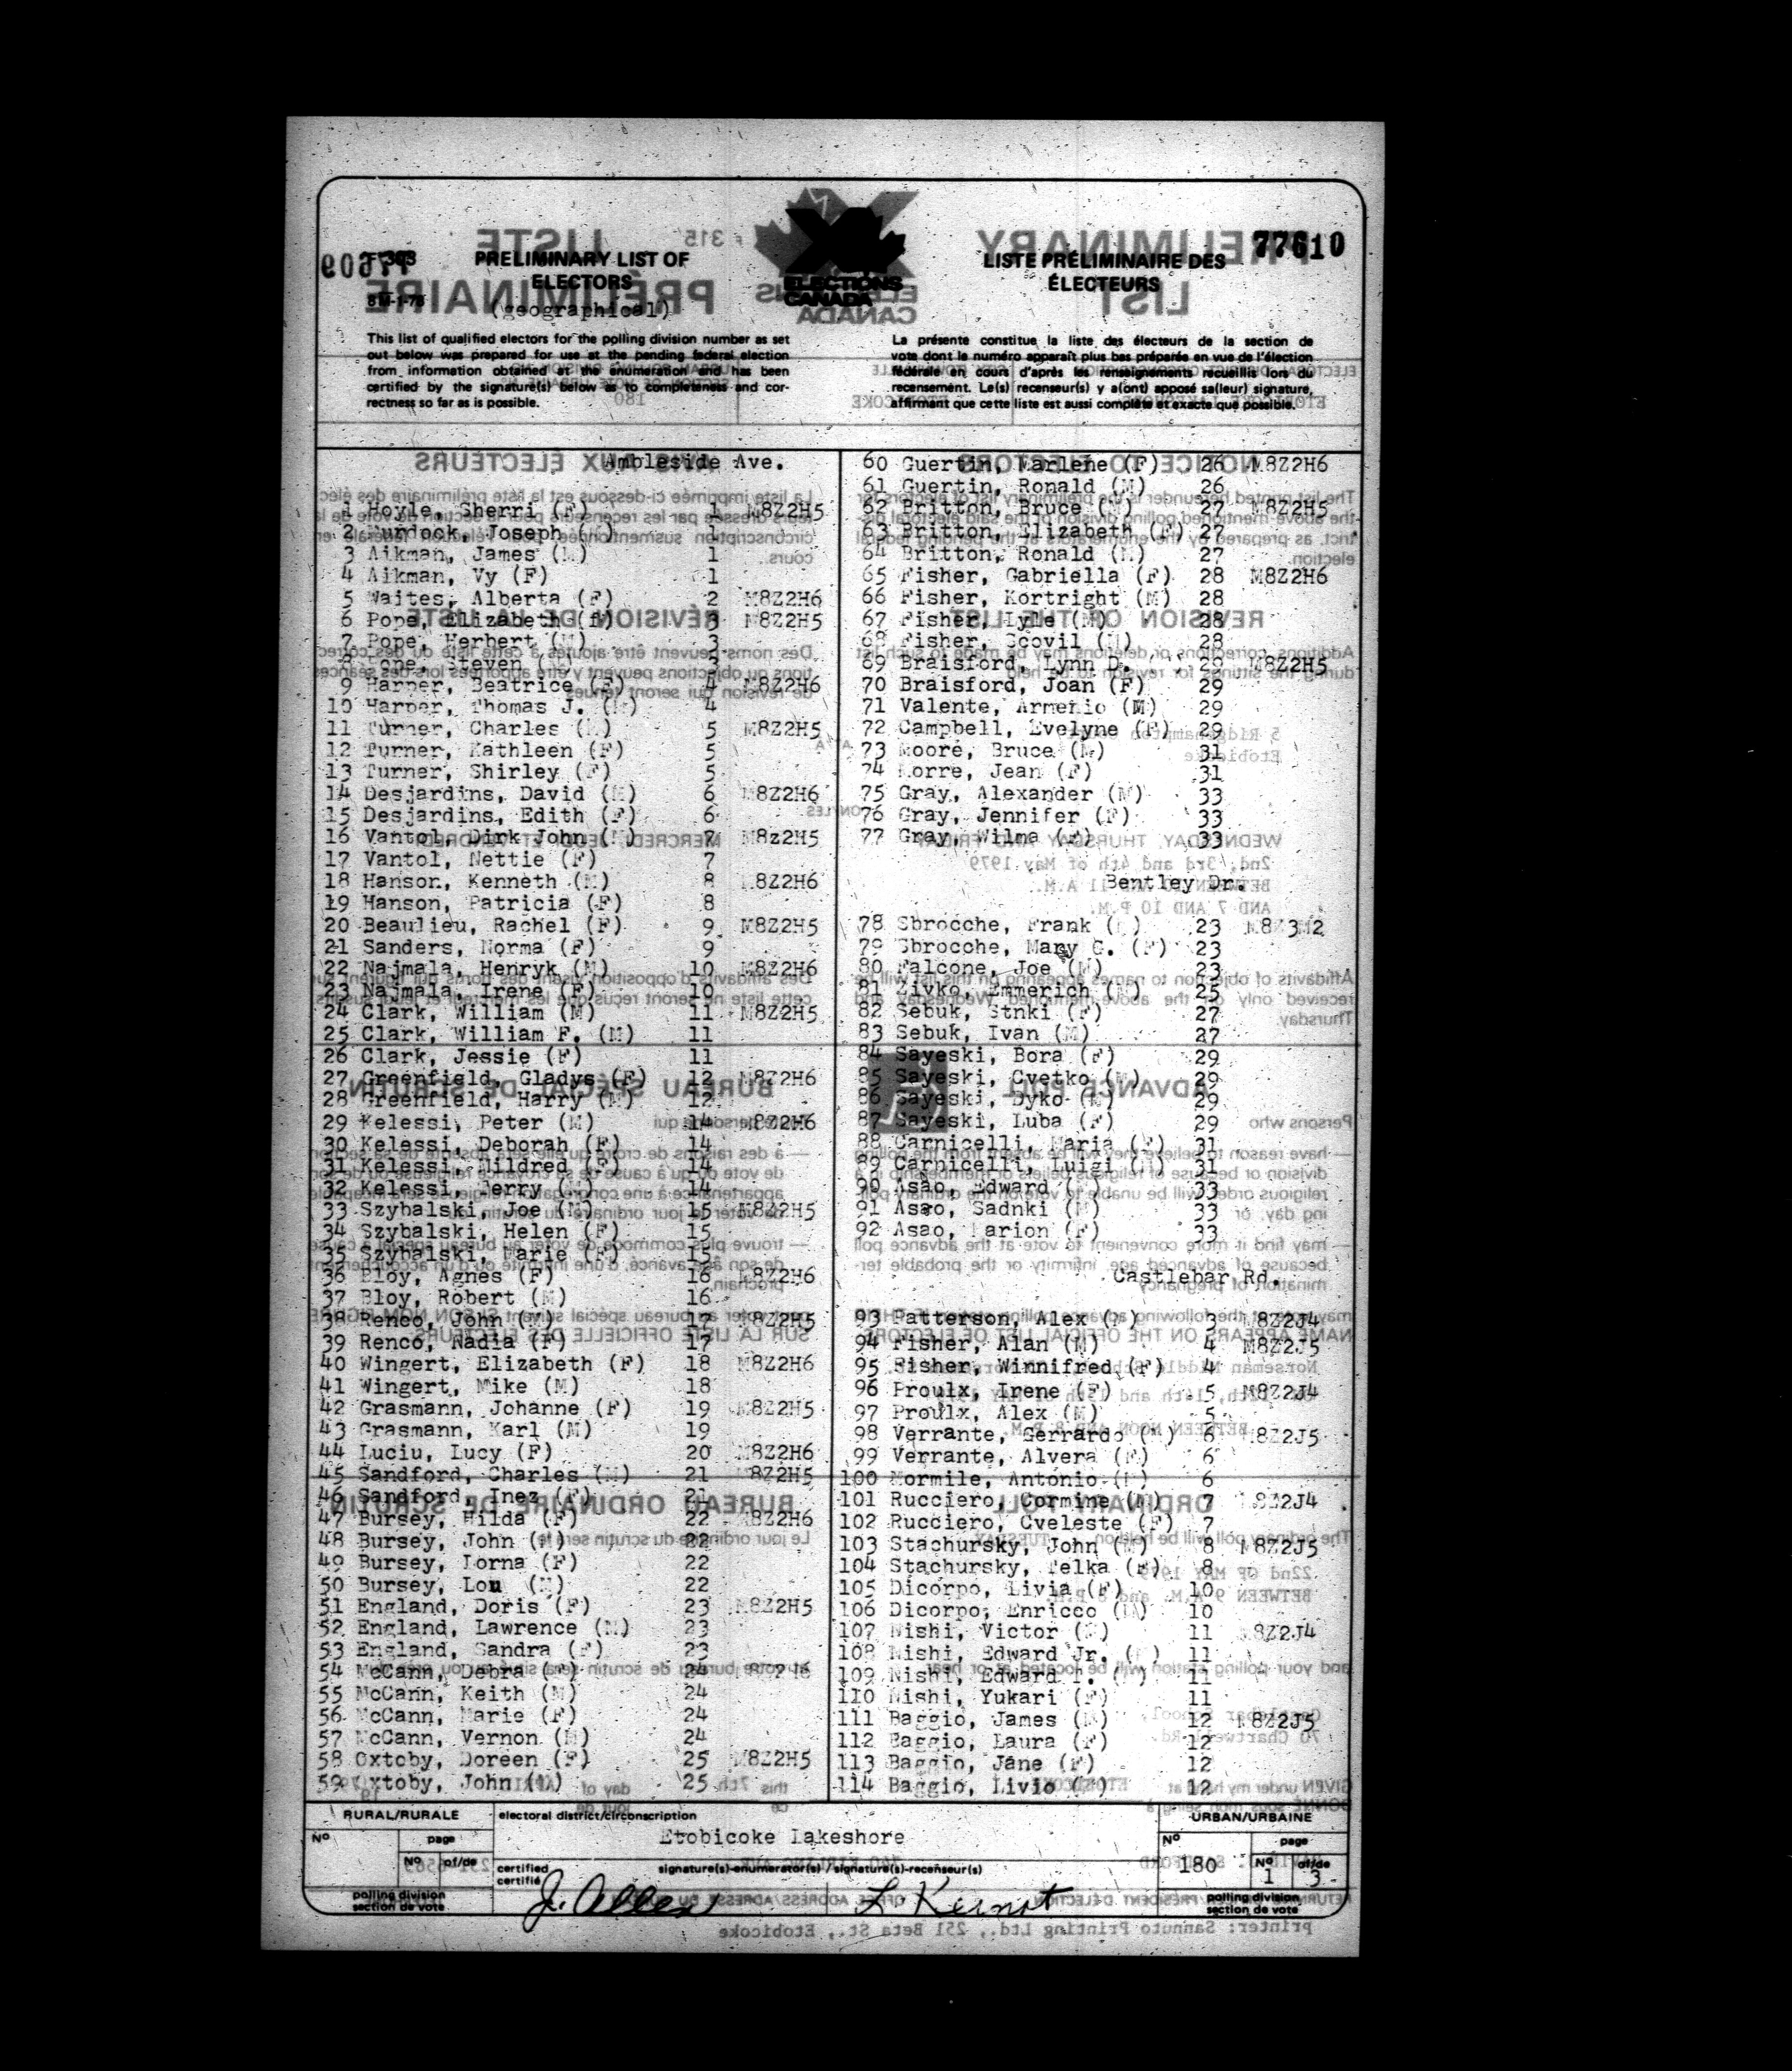 77610
F-303
8M-1-78
PRELIMINARY LIST OF
ELECTORS
(geographical)
ELECTIONS
CANADA
LISTE PRÉLIMINAIRE DES
ÉLECTEURS
This list of qualified electors for the polling division number as set
out below was prepared for use at the pending federal election
from information obtained at the enumeration and has been
certified by the signature(s) below as to completeness and cor-
rectness so far as is possible.
La présente constitue la liste des électeurs de la section de
vote dont le numéro apparaît plus bas préparée en vue de l'élection
fédérale en cours d'après les renseignements recueillis lors du
recensement. Le(s) recenseur(s) y a(ont) apposé sa(leur) signature,
affirmant que cette liste est aussi complète et exacte que possible.
Ambleside Ave.
1 Hoyle, Sherri (F) 1 M8Z2H5
2 Murdock, Joseph 1
3 Aikman, James (M) 1
4 Aikman, Vy (F) 1
5 Waites, Alberta (F) 2 M8Z2H6
6 Pope, Elizabeth (F) 3 M8Z2H5
7 Pope, Herbert (M) 3
8 Pope, Steven (M) 3
9 Harper, Beatrice (F) 4 M8Z2H6
10 Harper, Thomas J. (M) 4
11 Turner, Charles (M) 5 M8Z2H5
12 Turner, Kathleen (F) 5
13 Turner, Shirley (F) 5
14 Desjardins, David (M) 6 M8Z2H6
15 Desjardins, Edith (F) 6
16 Vantol, Dirk John (M) 7 M8z2H5
17 Vantol, Nettie (F) 7
18 Hanson, Kenneth (M) 8 M8Z2H6
19 Hanson, Patricia (F) 8
20 Beaulieu, Rachel (F) 9 M8Z2H5
21 Sanders, Norma (F) 9
22 Najmala, Henryk (M) 10 M8Z2H6
23 Najmala, Irene (F) 10
24 Clark, William (M) 11 M8Z2H5
25 Clark, William F. (M) 11
26 Clark, Jessie (F) 11
27 Greenfield, Gladys (F) 12 M8Z2H6
28 Greenfield, Harry (M) 12
29 Kelessi, Peter (M) 14 M8Z2H6
30 Kelessi, Deborah (F) 14
31 Kelessi, Mildred (F) 14
32 Kelessi, Jerry (M) 14
33 Szybalski, Joe (M) 15 M8Z2H5
34 Szybalski, Helen (F) 15
35 Szybalski, Marie (F) 15
36 Bloy, Agnes (F) 16 M8Z2H6
37 Bloy, Robert (M) 16
38 Renco, John (M) 17 M8Z2H5
39 Renco, Nadia (F) 17
40 Wingert, Elizabeth (F) 18 M8Z2H6
41 Wingert, Mike (M) 18
42 Grasmann, Johanne (F) 19 M8Z2H5
43 Grasmann, Karl (M) 19
44 Luciu, Lucy (F) 20 M8Z2H6
45 Sandford, Charles (M) 21 M8Z2H5
46 Sandford, Inez (F) 21
47 Bursey, Hilda (F) 22 M8Z2H6
48 Bursey, John (M) 22
49 Bursey, Lorna (F) 22
50 Bursey, Lou (M) 22
51 England, Doris (F) 23 M8Z2H5
52 England, Lawrence (M) 23
53 England, Sandra (F) 23
54 McCann, Debra (F) 24
55 McCann, Keith (M) 24
56 McCann, Marie (F) 24
57 McCann, Vernon (M) 24
58 Oxtoby, Doreen (F) 25 M8Z2H5
59 Oxtoby, John (M) 25
60 Guertin, Marlene (F) 26 M8Z2H6
61 Guertin, Ronald (M) 26
62 Britton, Bruce (M) 27 M8Z2H5
63 Britton, Elizabeth (F) 27
64 Britton, Ronald (M) 27
65 Fisher, Gabriella (F) 28 M8Z2H6
66 Fisher, Kortright (M) 28
67 Fisher, Lyle (M) 28
68 Fisher, Scovil (M) 28
69 Braisford, Lynn D. 29 M8Z2H5
70 Braisford, Joan (F) 29
71 Valente, Armenio (M) 29
72 Campbell, Evelyne (F) 29
73 Moore, Bruce (M) 31
74 Morre, Jean (F) 31
75 Gray, Alexander (M) 33
76 Gray, Jennifer (F) 33
77 Gray, Wilma (F) 33
Bentley Dr.
78 Sbrocche, Frank (M) 23 M8Z3M2
79 Sbrocche, Mary G. (F) 23
80 Falcone, Joe (M) 23
81 Zivko, Emmerich (M) 25
82 Sebuk, Stnki (F) 27
83 Sebuk, Ivan (M) 27
84 Sayeski, Bora (F) 29
85 Sayeski, Cvetko (M) 29
86 Sayeski, Dyko (M) 29
87 Sayeski, Luba (F) 29
88 Carnicelli, Maria (F) 31
89 Carnicelli, Luigi (M) 31
90 Asao, Edward (M) 33
91 Asao, Sadnki (M) 33
92 Asao, Marion (F) 33
Castlebar Rd.
93 Patterson, Alex (F) 3 M8Z2J4
94 Fisher, Alan (M) 4 M8Z2J5
95 Fisher, Winnifred (F) 4
96 Proulx, Irene (F) 5 M8Z2J4
97 Proulx, Alex (M) 5
98 Verrante, Gerrardo (M) 6 M8Z2J5
99 Verrante, Alvera (F) 6
100 Mormile, Antonio (M) 6
101 Rucciero, Cormine (M) 7 M8Z2J4
102 Rucciero, Cveleste (F) 7
103 Stachursky, John (M) 8 M8Z2J5
104 Stachursky, Telka (F) 8
105 Dicorpo, Livia (F) 10
106 Dicorpo, Enricco (M) 10
107 Nishi, Victor (M) 11 M8Z2J4
108 Nishi, Edward Jr. (M) 11
109 Nishi, Edward T. (M) 11
110 Nishi, Yukari (F) 11
111 Baggio, James (M) 12 M8Z2J5
112 Baggio, Laura (F) 12
113 Baggio, Jane (F) 12
114 Baggio, Livio (M) 12
RURAL/RURALE
No
page
No of/de
polling division
section de vote
electoral district/circonscription
Etobicoke Lakeshore
certified
certifié
signature(s)-enumerator(s) / signature(s)-recenseur(s)
J. Allen
L Kernot
URBAN/URBAINE
No
180
page
No of/de
1 3
polling division
section de vote